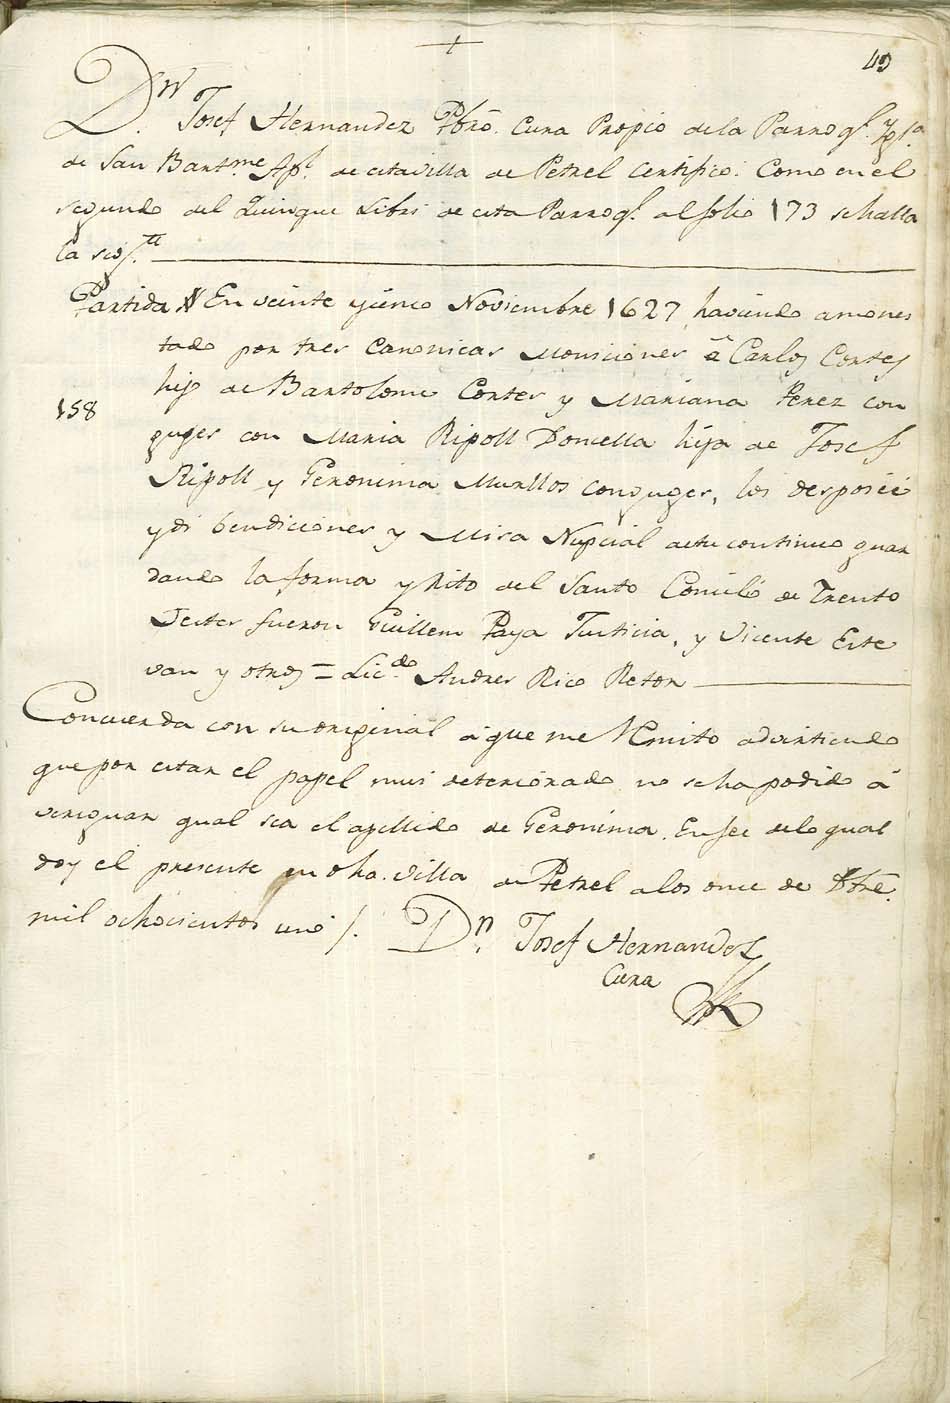 +
49
Dn. Josef Hernandez Pbro. Cura Propio de la Parroql. Ygla.
de San Bartme. Apl. de esta villa de Petrel Certifico: Como en el
segundo del Quinque Libri de esta Parroql. al folio 173 se halla
la sigte.
Partida En veinte y cinco Noviembre 1627 haviendo amones
tado por tres Canonicas Moniciones a Carlos Cortes
hijo de Bartolome Cortes y Mariana Perez con
158
yuges con Maria Ripoll Doncella hija de Josef
Ripoll y Geronima Murllos conyuges, los desposè
y di bendiciones y Misa Nupcial actu continuo guar
dando la forma y Rito del Santo Concilio de Trento
Testes fueron Guillem Paya Justicia, y Vicente Este
van y otros = Licdo. Andres Rico Retor
Concuerda con su original à que me Remito advirtiendo
que por estar el papel mui deteriorado no se ha podido a
veriguar qual sea el apellido de Geronima. En fee de lo qual
doy el presente en dha. villa de Petrel a los once de
mil ochocientos uno /. Dn. Josef Hernandez
Cura